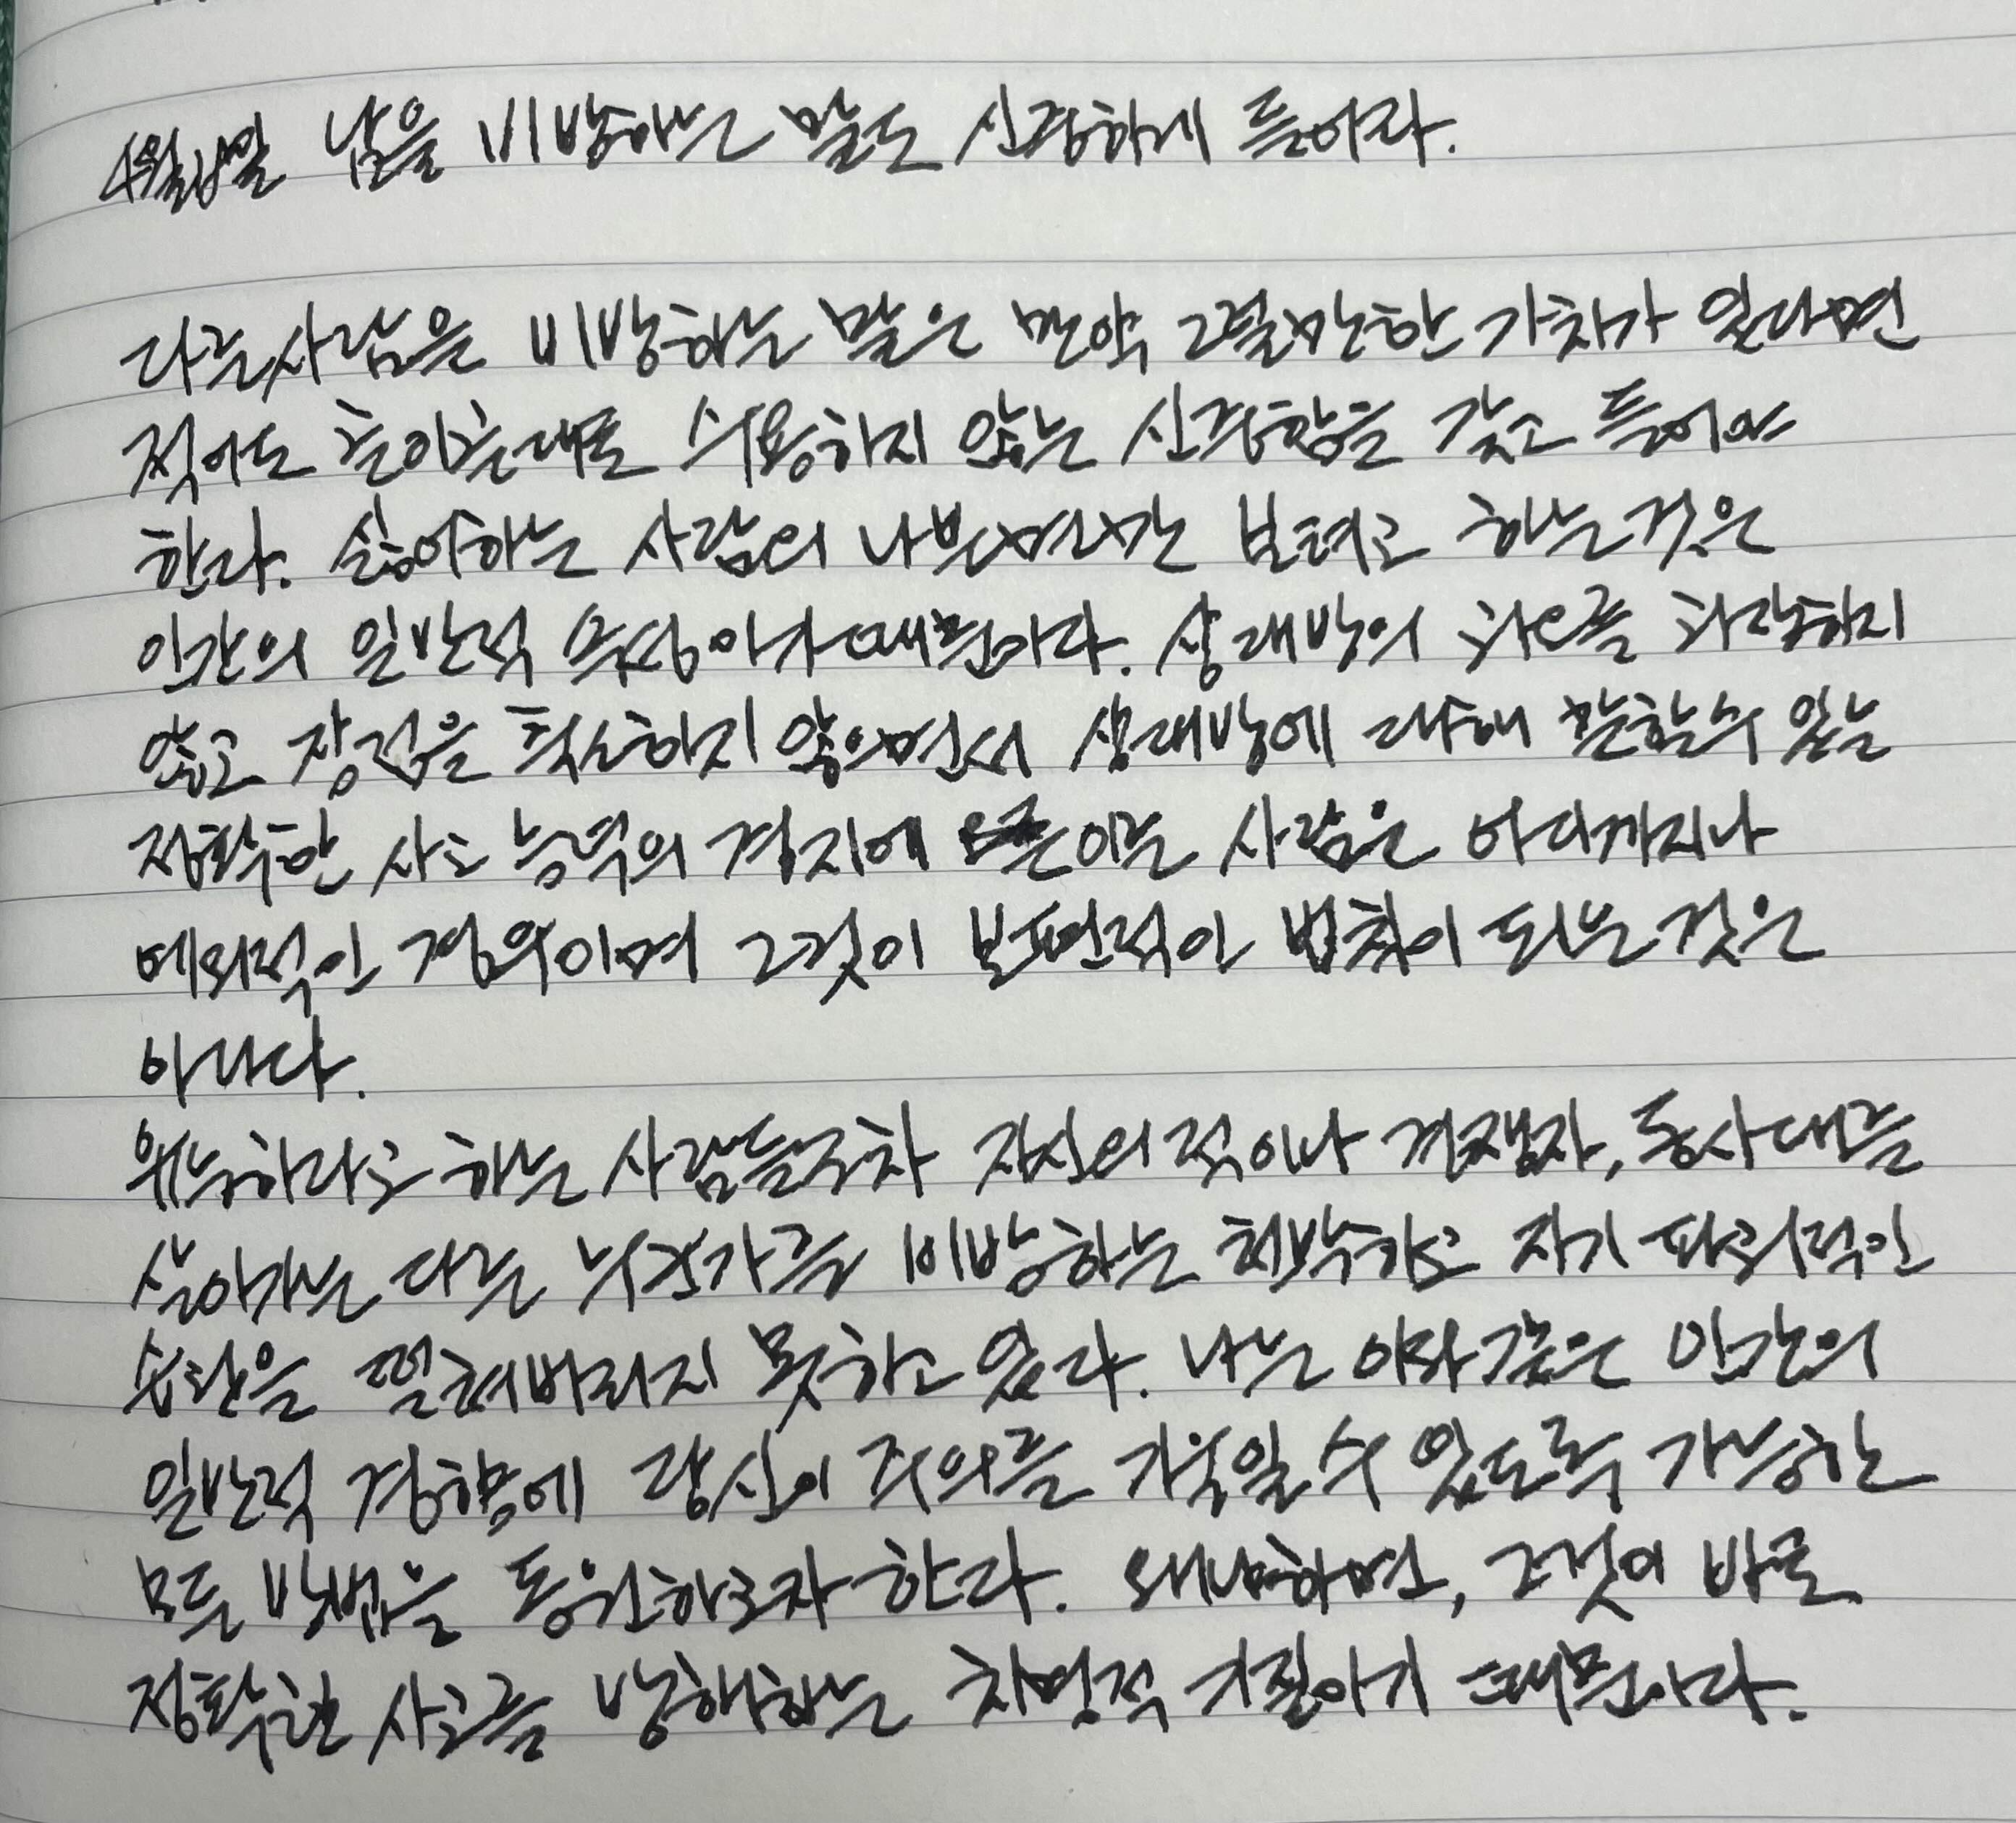 4월 일 남을 비방하는 말도 신중하게 들어라.
다른사람을 비방하는 말은 만약 그럴만한 가치가 있다면
적어도 들어 수용하지 않는 신중함을 갖고 들어야
한다. 싫어하는 사람의 나쁜면만 보려고 하는것은
인간의 일반적 속성이기때문이다. 상대방의 과오를 과장하지
않고 장점을 축소하지 않으면서 상대방에 대해 말할수 있는
정확한 사고 능력의 경지에 이른 사람은 어디까지나
예외적인 경우이며 그것이 보편적인 법칙이 되는것은
아니다.
유능하다고 하는 사람들조차 자신의 적이나 경쟁자, 동시대를
살아가는 다른 누군가를 비방하는 천박하고 자기 파괴적인
습관을 떨쳐버리지 못하고 있다. 나는 이와 같은 인간의
일반적 경향에 당신이 주의를 기울일 수 있도록 가능한
모든 방법을 동원하고자 한다. 왜냐하면, 그것이 바로
정확한 사고를 방해하는 치명적 기질이기 때문이다.